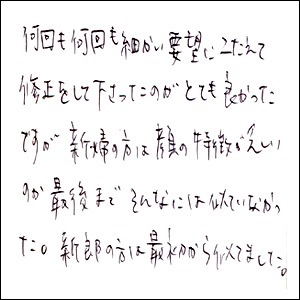 何回も何回も細かい要望にこたえて
修正をして下さったのがとても良かった
ですが新婦の方は顔の特徴が
のか最後までそんなには似ていなかっ
た。新郎の方は最初から似てました。